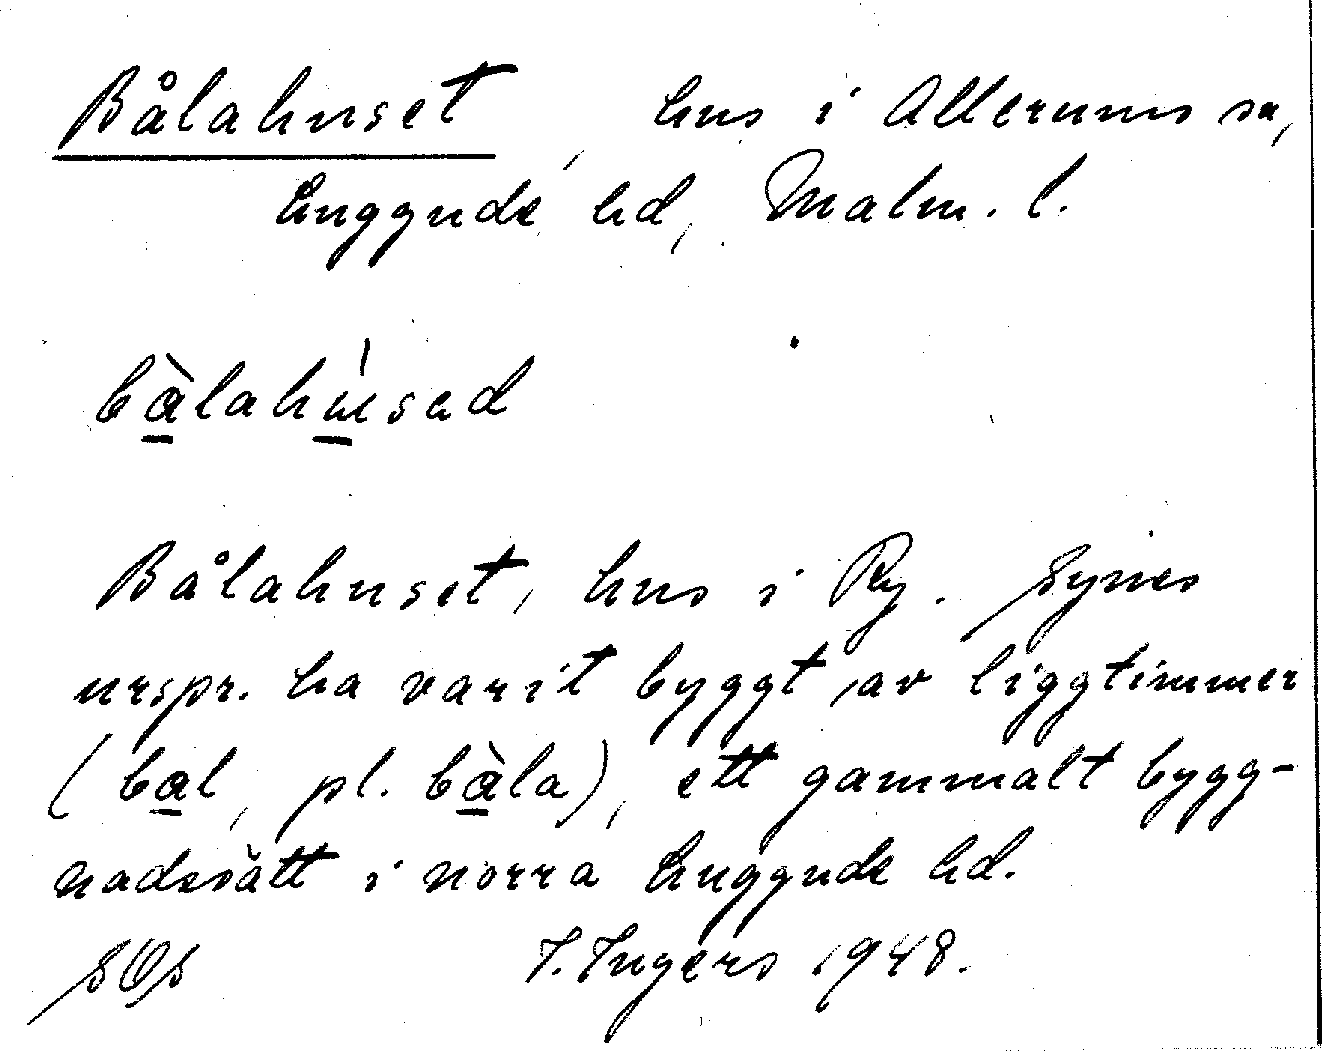 Bålahuset, hus i Allerums sn,
Luggude hd, Malm. l.
bàlahùsad
Bålahuset, hus i Ry. Synes
urspr. ha varit byggt av liggtimmer
(bal, pl. bàla), ett gammalt bygg-
nadssätt i norra Luggude hd.
SOs I. Ingers 1948.